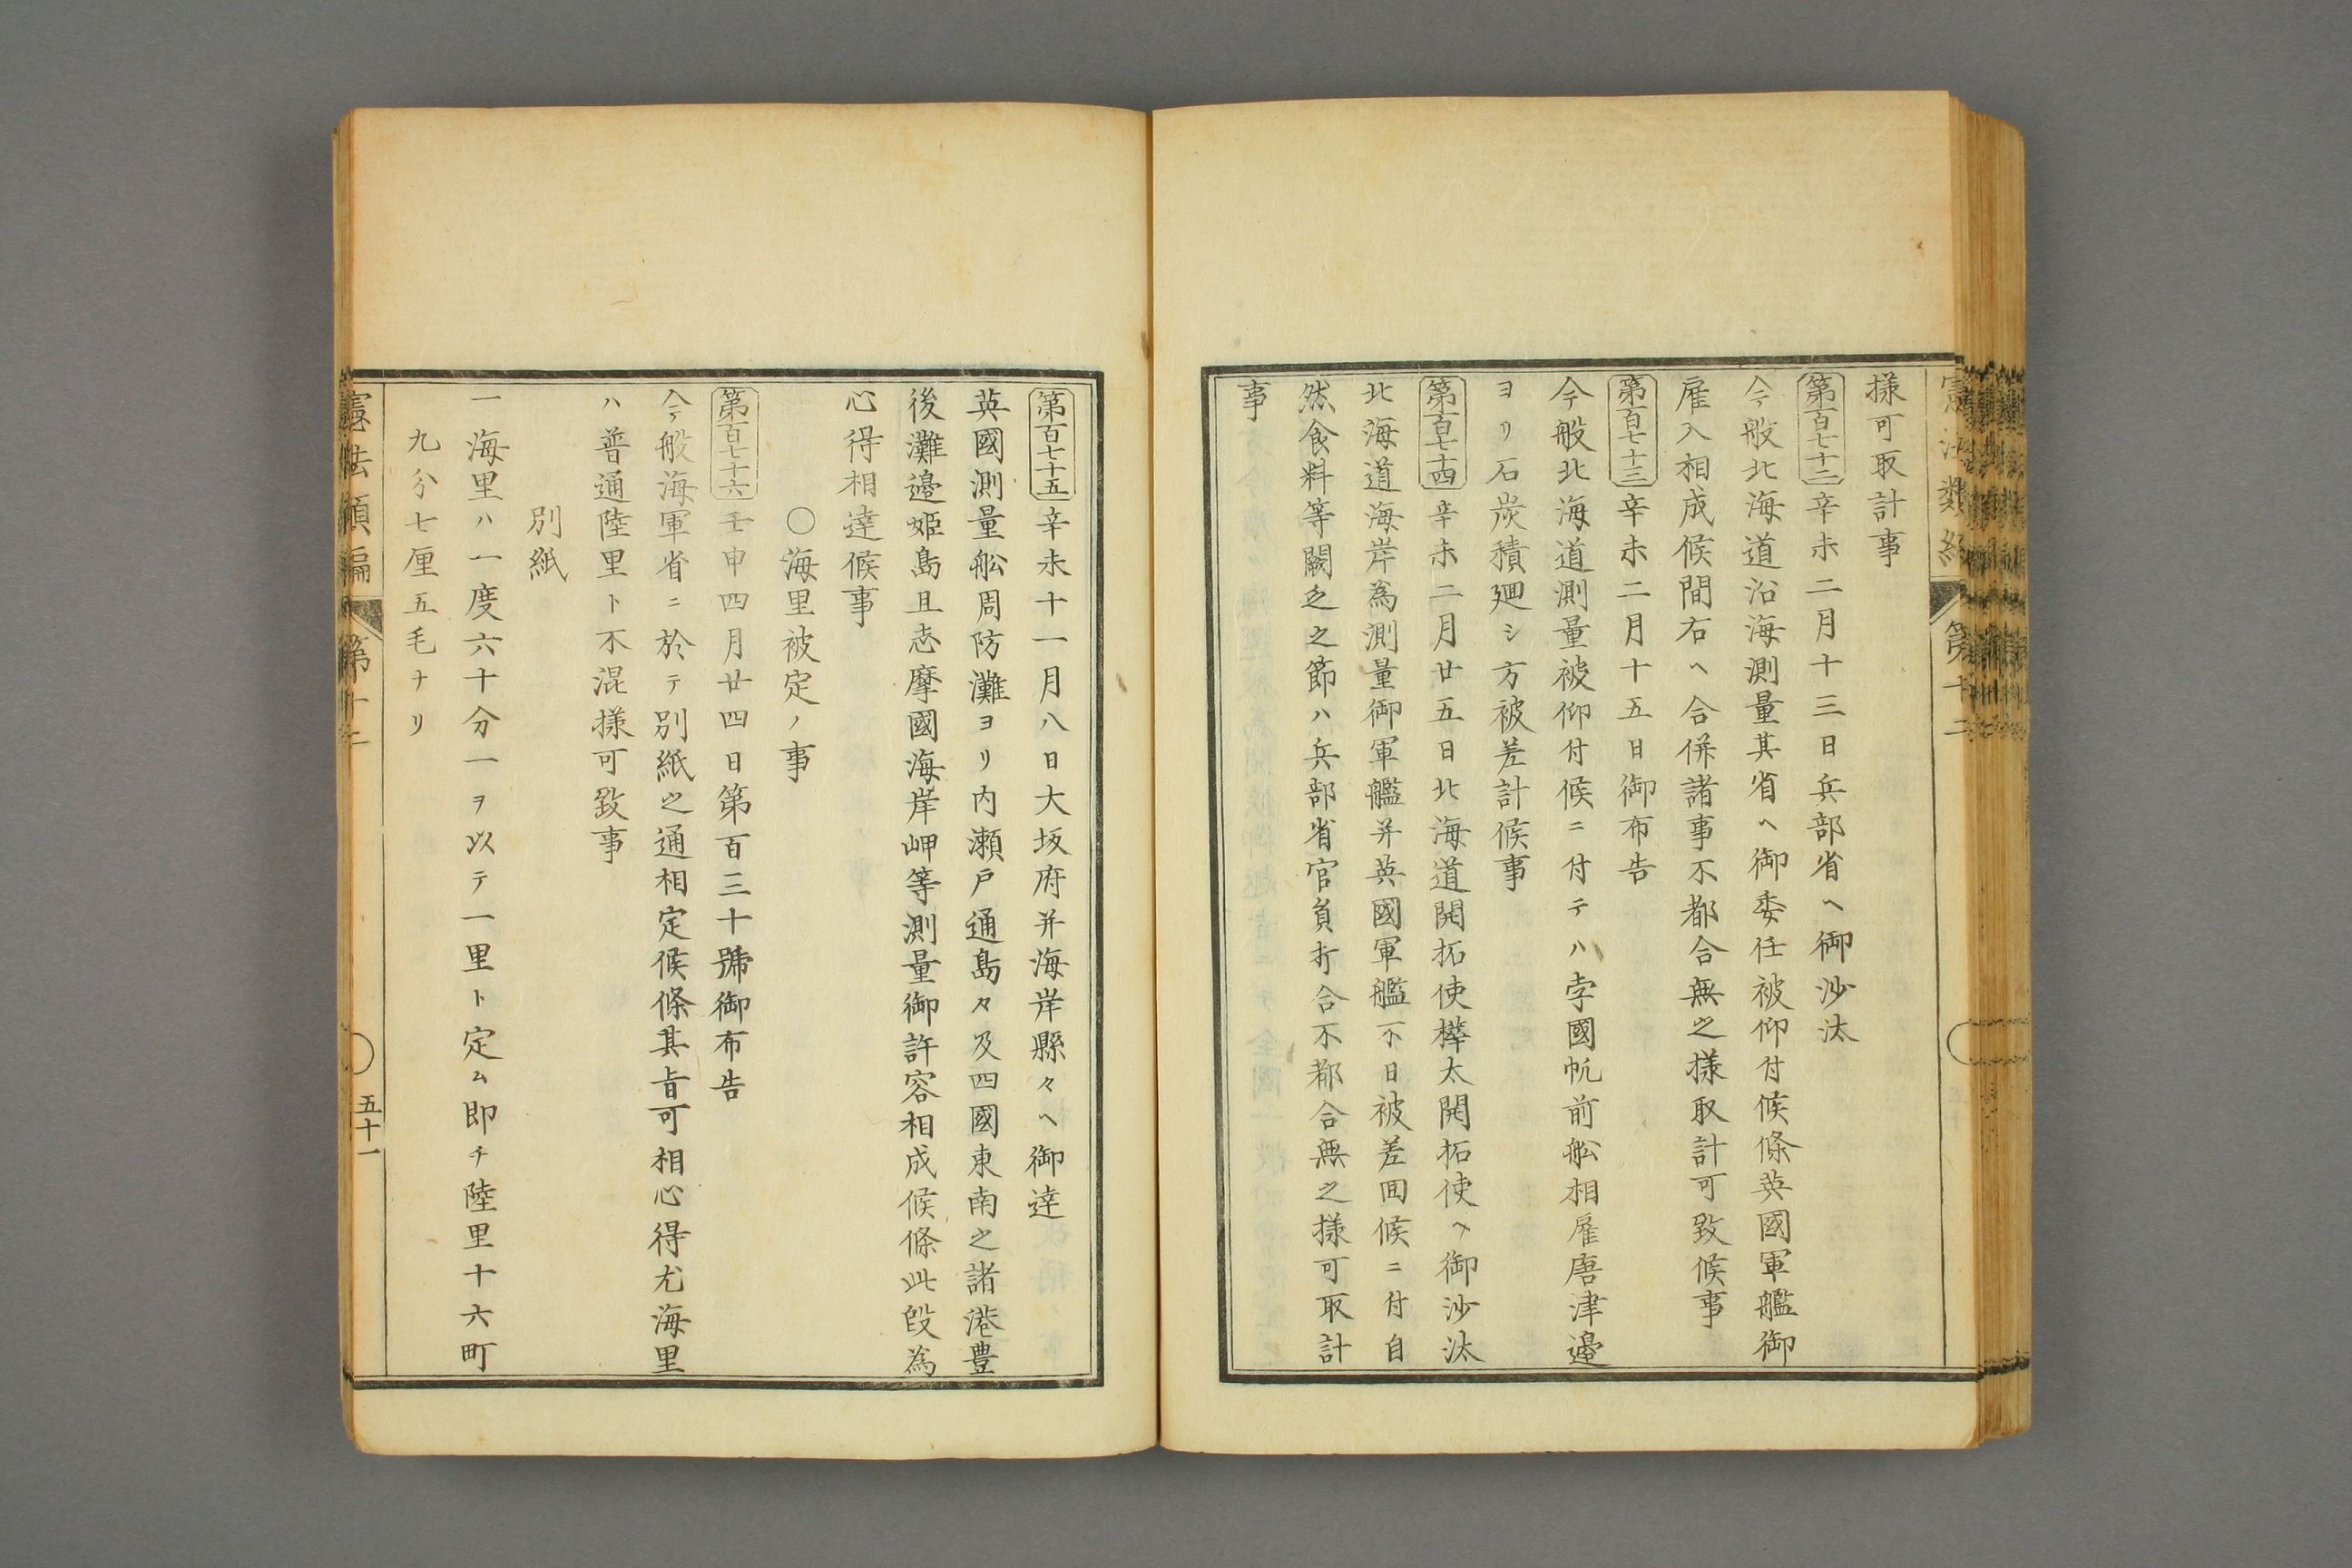 樣可取計事
第百七十二 辛未二月十三日兵部省ヘ御沙汰
今般北海道沿海測量其省ヘ御委任被仰付候條英國軍艦御
雇入相成候間右ヘ合併諸事不都合無之樣取計可致候事
第百七十三 辛未二月十五日御布告
今般北海道測量被仰付候ニ付テハ孛國帆前舩相雇唐津邊
ヨリ石炭積廻シ方被差計候事
第百七十四 辛未二月廿五日北海道開拓使樺太開拓使ヘ御沙汰
北海道海岸為測量御軍艦并英國軍艦不日被差囬候ニ付自
然食料等闕乏之節ハ兵部省官員打合不都合無之樣可取計
事
第百七十五 辛未十一月八日大坂府并海岸縣々ヘ御達
英國測量舩周防灘ヨリ内瀬戸通島々及四國東南之諸港豊
後灘邉姫島且志摩國海岸岬等測量御許容相成候條此段為
心得相達候事
○海里被定ノ事
第百七十六 壬申四月廿四日第百三十號御布告
今般海軍省ニ於テ別紙之通相定候條其旨可相心得尤海里
ハ普通陸里ト不混樣可致事
別紙
一海里ハ一度六十分一ヲ以テ一里ト定ム即チ陸里十六町
九分七厘五毛ナリ
憲法類編 第十二 五十一